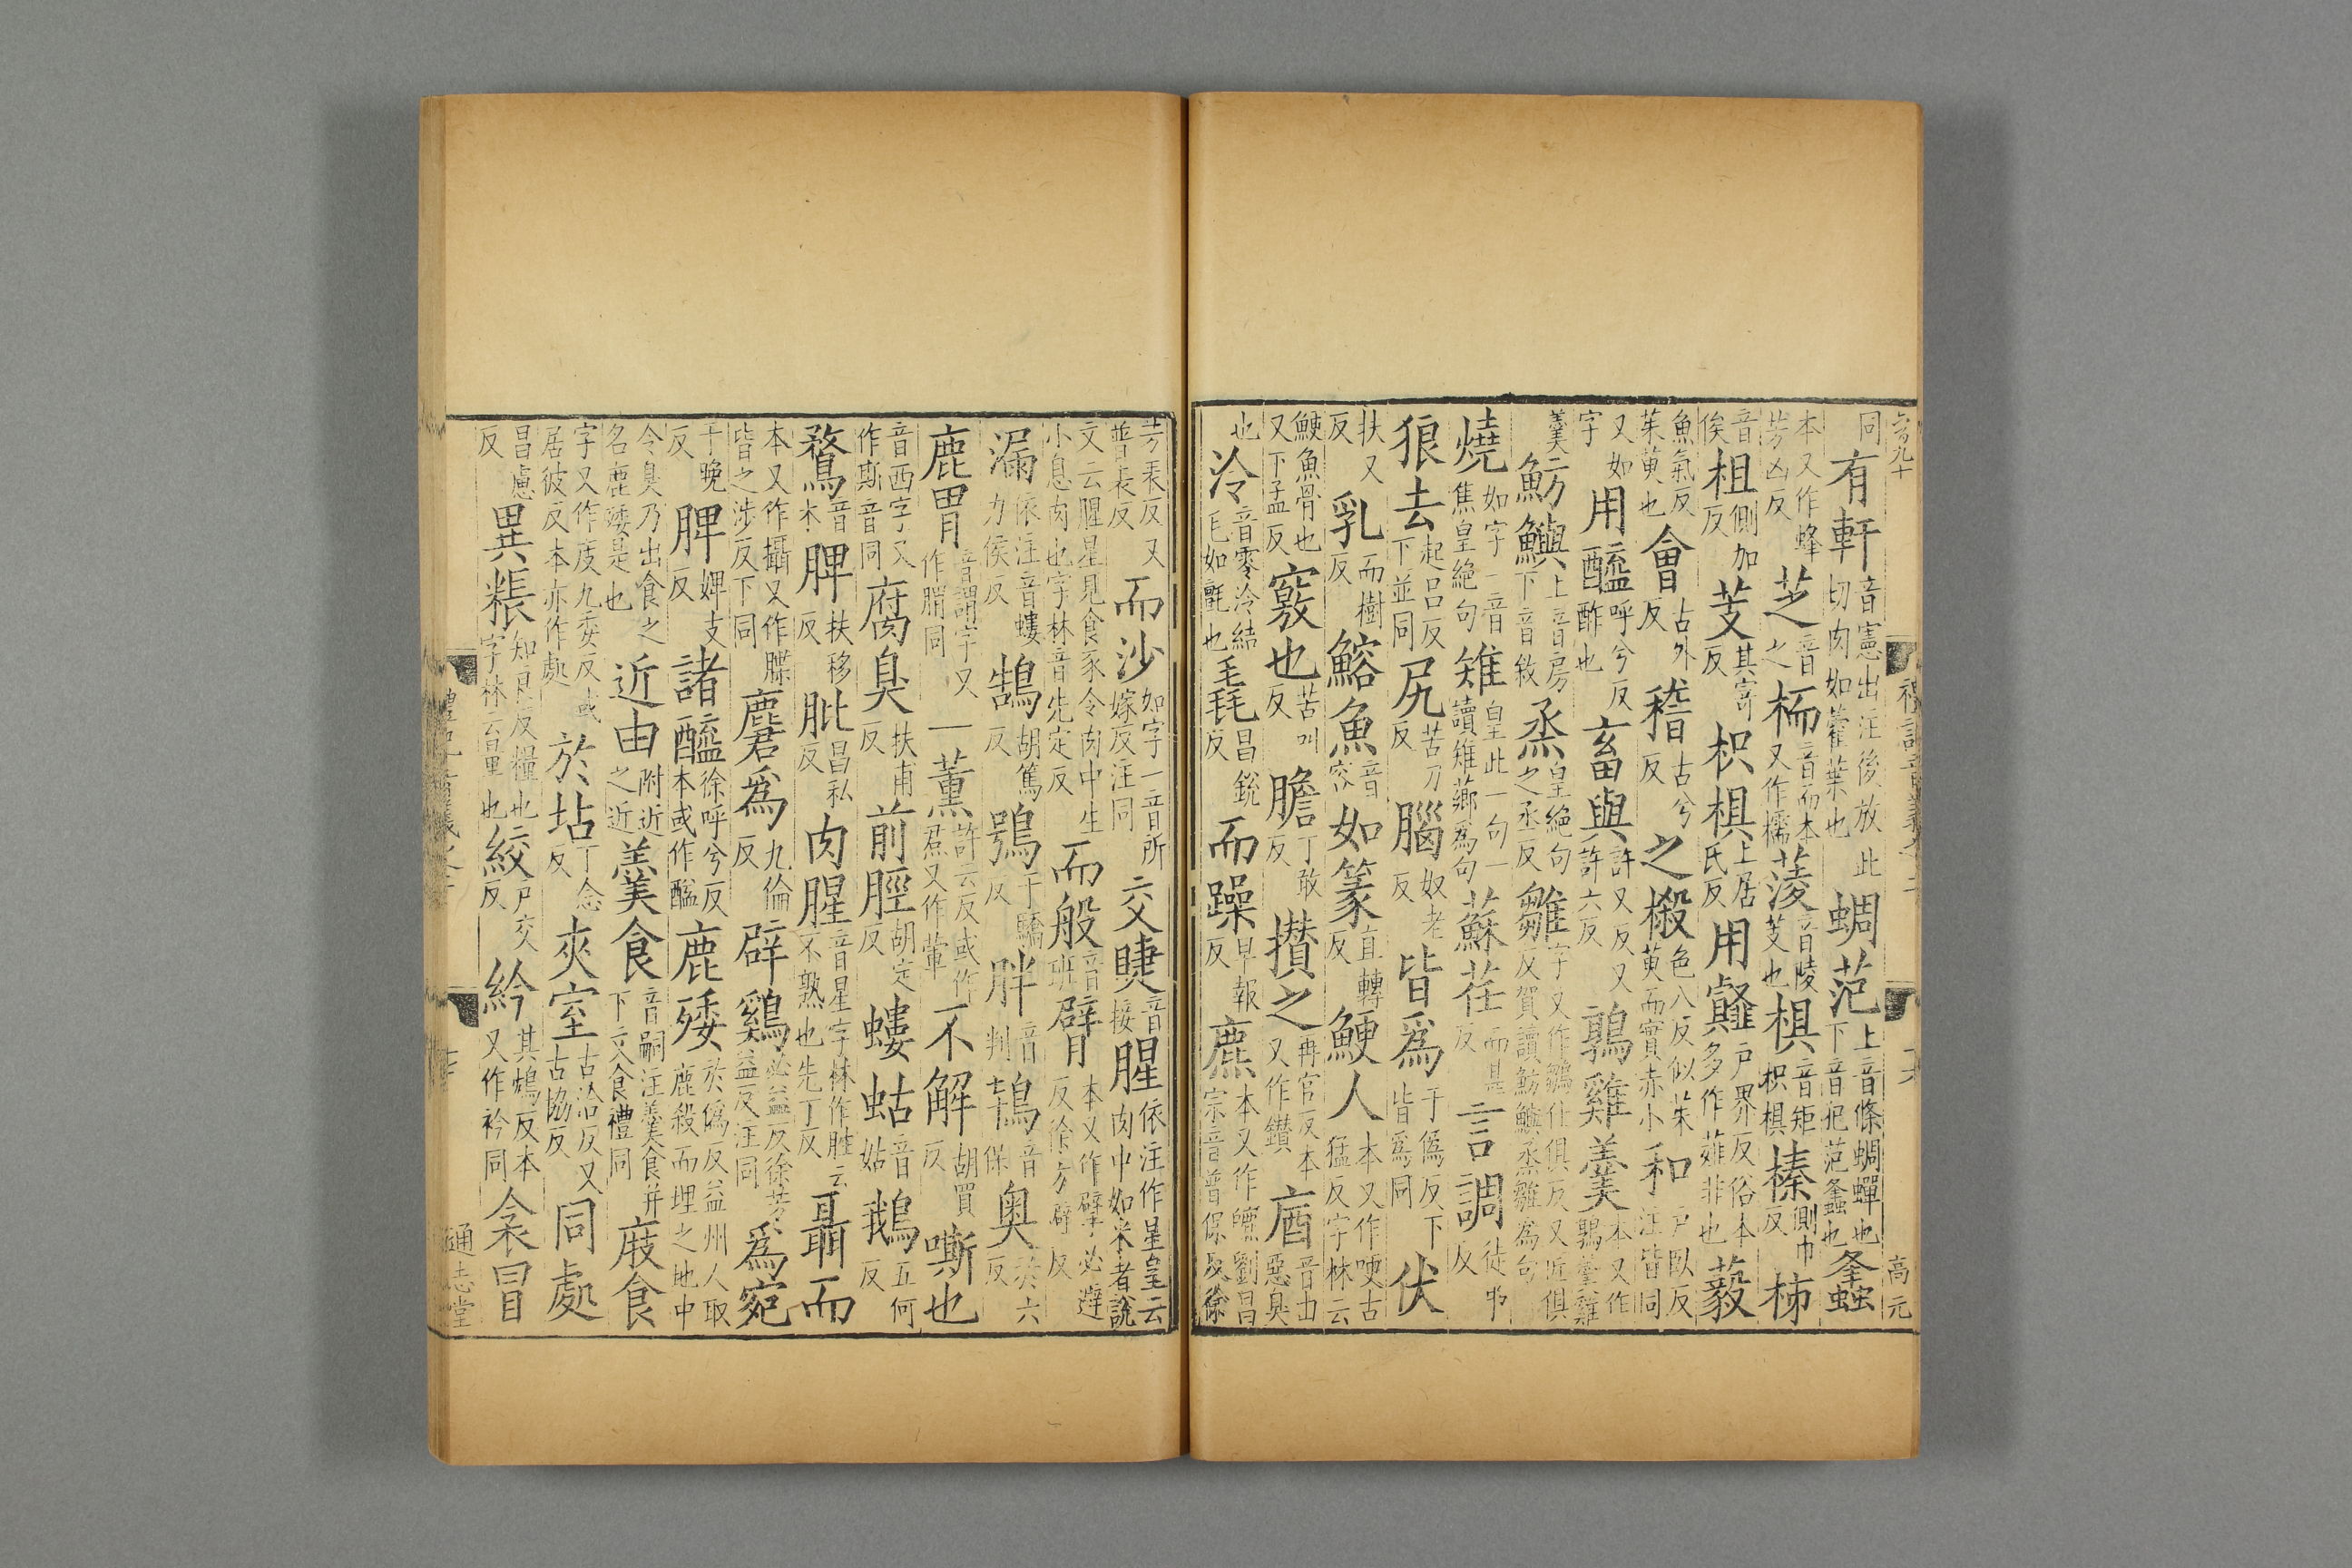 同有軒音憲出注後放此切肉如藿葉也蜩范上音條蜩蟬也下音犯范蠭也蠭
本又作蜂芳凶反芝音之栭音而本又作檽菱音陵芰也椇音矩枳椇榛側巾反柿
音俟柤側加反芰其寄反枳椇上居氏反用虀戶界反俗本多作薤非也藙
魚氣反茱萸也會古外反稽古兮反之樧色八反似茱萸而實赤小和戶臥反注皆同
又如字用醯呼兮反酢也畜與許又反又許六反鶉雞羹本又作鶉羹雞
羹魴鱮上音房下音敘烝皇絕句之丞反雛字又作鶵仕俱反又匠俱反賀讀魴鱮烝雛爲句
燒如字一音焦皇絕句雉皇此一句一讀雉薌爲句蘇荏而甚反言調徒弔反
狼去起呂反下並同尻苦刀反腦奴老反皆爲于僞反下皆爲同伏
扶又反乳而樹反鰫魚音容如篆直轉反鯁人本又作哽古猛反字林云
鯁魚骨也又下孟反竅也苦叫反膽丁敢反攢之再官反本又作鑽庮音由惡臭
也泠音零泠結毛如氈也毳昌銳反而躁早報反麃本又作皫劉昌宗音普保反徐
芳表反又普表反而沙如字一音所嫁反注同交睫音接腥依注作星皇云肉中如米者說
文云腥星見食豕令肉中生小息肉也字林音先定反而般音班臂本又作擘必避反徐方辟反
漏依注音螻力侯反鵠胡篤反鴞于驕反胖音判鴇音保奧於六反
鹿胃音謂字又作䐣同一薰許云反或作焄又作葷不解胡買反嘶也
音西字又作斯音同腐臭扶甫反前脛胡定反螻蛄音姑鵝五何反
鶩音木脾扶移反肶昌私反肉腥音星字林作胜云不熟也先丁反聶而
本又作攝又作牒皆之涉反下同麏爲九倫反辟雞必益反徐芳益反注同爲宛
于晚反脾婢支反諸醯徐呼兮反本或作醢鹿㾯於僞反益州人取鹿殺而埋之地中
令臭乃出食之名鹿㾯是也近由附近之近羹食音嗣注羹食幷下文食禮同庪食
字又作庋九委反或居彼反本亦作處於坫丁念反夾室古洽反又古協反同處
昌慮反異粻知良反糧也字林云量也絞戶交反紟其鴆反本又作衿同衾冒
高元
通志堂